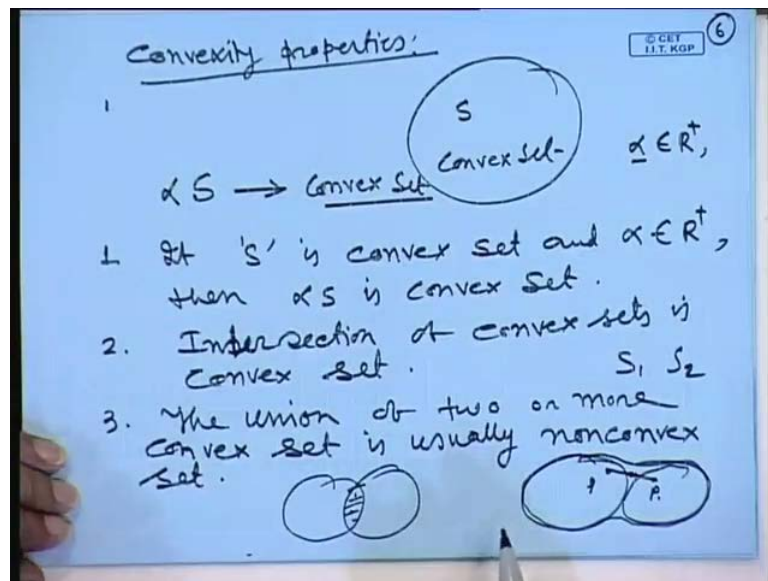 Convexity properties:
© CET
I.I.T. KGP
6
1
S
Convex Set
α ∈ R⁺,
α S → Convex Set
1 If 'S' is convex set and α ∈ R⁺,
then αS is convex set.
2. Intersection of convex sets is
convex set.
S₁ S₂
3. The union of two or more
convex set is usually nonconvex
set.